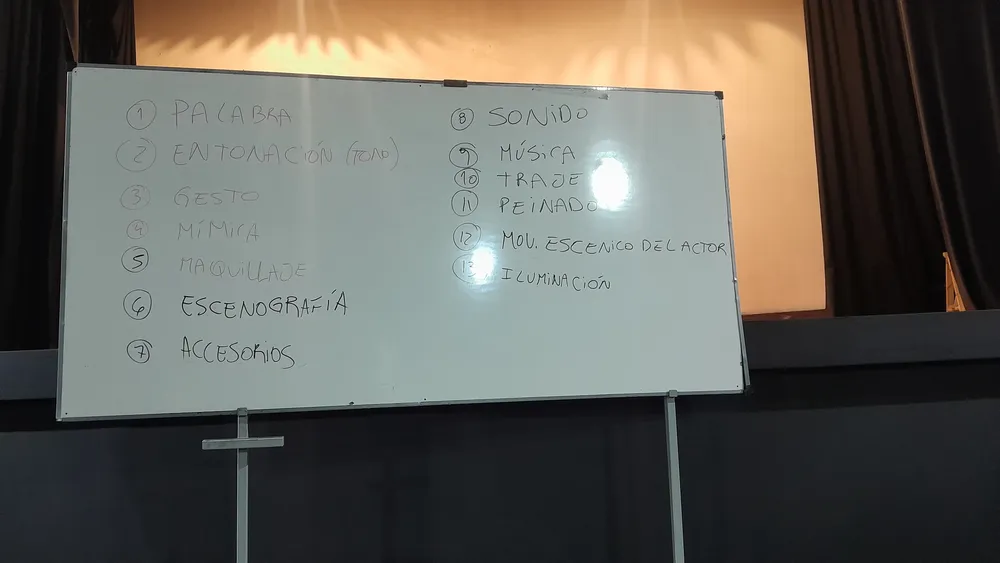 1 PALABRA
2 ENTONACIÓN (TONO)
3 GESTO
4 MÍMICA
5 MAQUILLAJE
6 ESCENOGRAFÍA
7 ACCESORIOS
8 SONIDO
9 MÚSICA
10 TRAJE
11 PEINADO
12 MOV. ESCENICO DEL ACTOR
13 ILUMINACIÓN